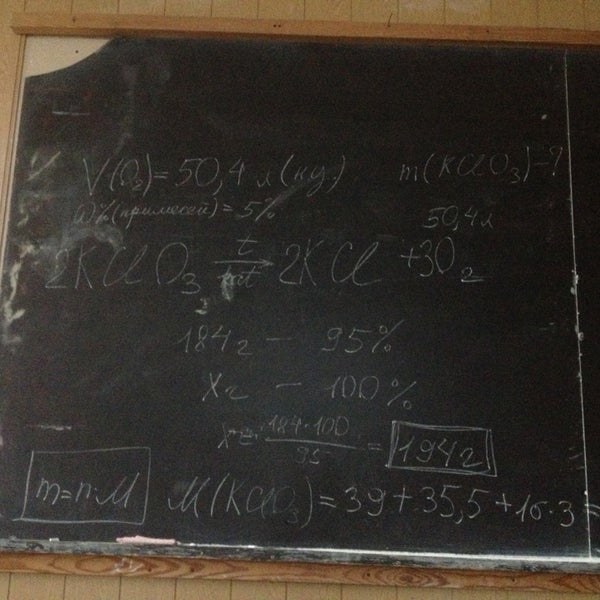 V(O₂) = 50,4 л (н.у.) m(KClO₃) - ?
ω%(примесей) = 5%
50,4 л
2KClO₃ t/кат → 2KCl + 3O₂
184 г – 95%
X г – 100%
X = 184·100/95 = 194 г
m=n·M M(KClO₃) = 39 + 35,5 + 16·3 =